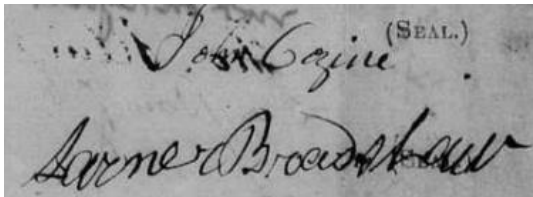 John Cozine (SEAL.)
Larner Bradshaw